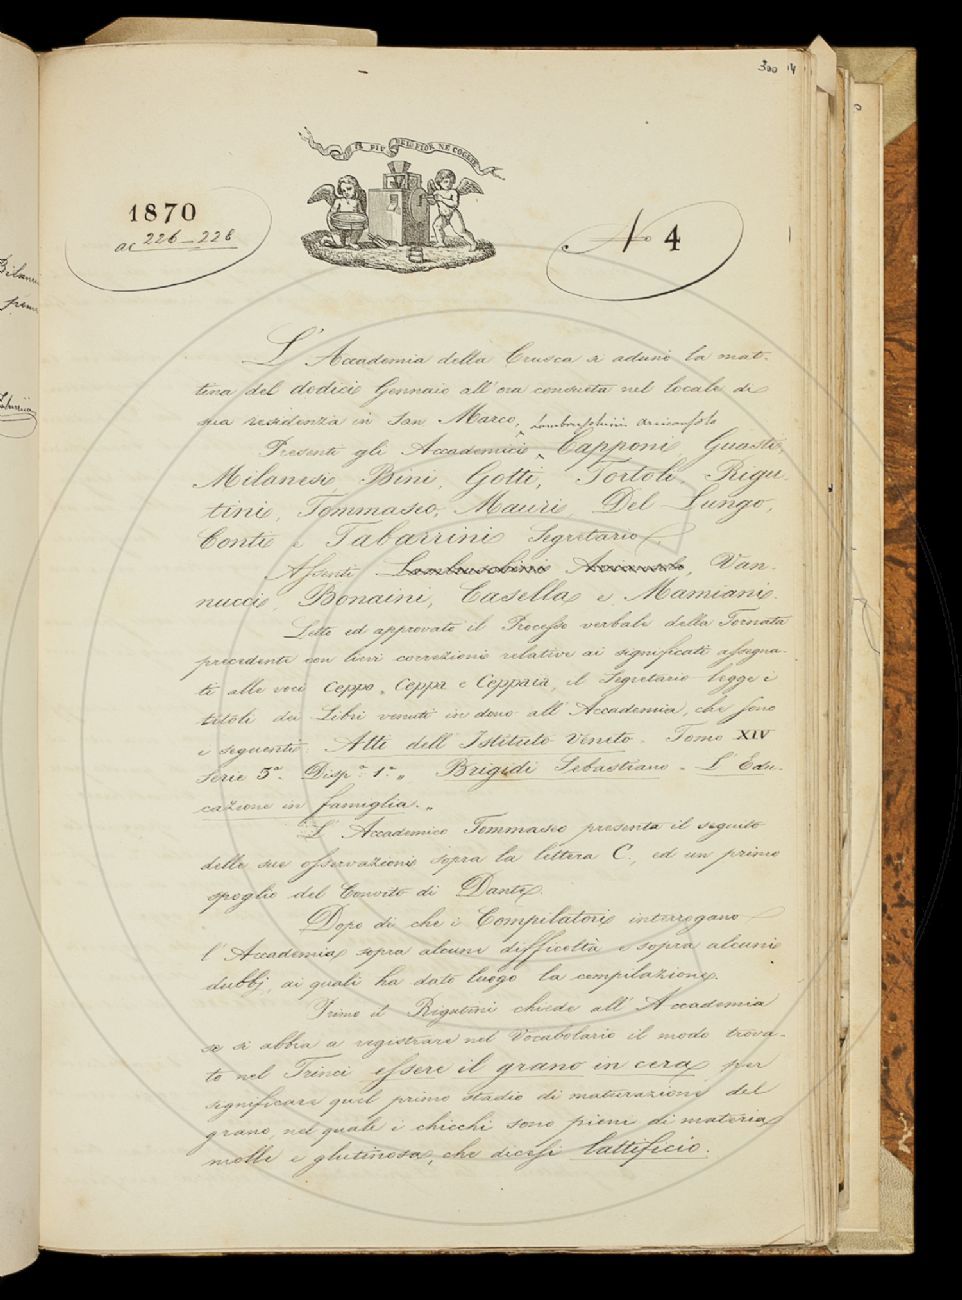 300 14
IL PIÙ BEL FIOR NE COGLIE
1870
ac 226-228
No 4
L'Accademia della Crusca si adunò la mat-
tina del dodici Gennaio all'ora consueta nel locale di
sua residenza in San Marco,
Lambruschini Arciconsolo
Presenti gli Accademici Capponi, Guasti,
Milanesi Bini, Gotti, Tortoli, Rigu-
tini, Tommaseo, Mauri Del Lungo,
Conti e Tabarrini Segretario.
Assenti Lambruschini, Van-
nucci, Bonaini, Casella e Mamiani.
Letto ed approvato il Processo verbale della Tornata
precedente con lievi correzioni relative ai significati assegna-
ti alle voci Ceppo, Ceppa e Ceppaia, il Segretario legge i
titoli dei Libri venuti in dono all'Accademia, che sono
i seguenti: Atti dell'Istituto Veneto. Tomo XIV
Serie 3a. Disp.a 1.a „ Brigidi Sebastiano - L'Edu-
cazione in famiglia. „
L'Accademico Tommaseo presenta il seguito
delle sue osservazioni sopra la lettera C., ed un primo
spoglio del Convito di Dante.
Dopo di che i Compilatori interrogano
l'Accademia sopra alcune difficoltà e sopra alcuni
dubbj, ai quali ha dato luogo la compilazione.
Primo il Rigutini chiede all'Accademia
se si abbia a registrare nel Vocabolario il modo trova-
to nel Trinci essere il grano in cera per
significare quel primo stadio di maturazione del
grano, nel quale i chicchi sono pieni di materia
molle e glutinosa, che dicesi lattificio.